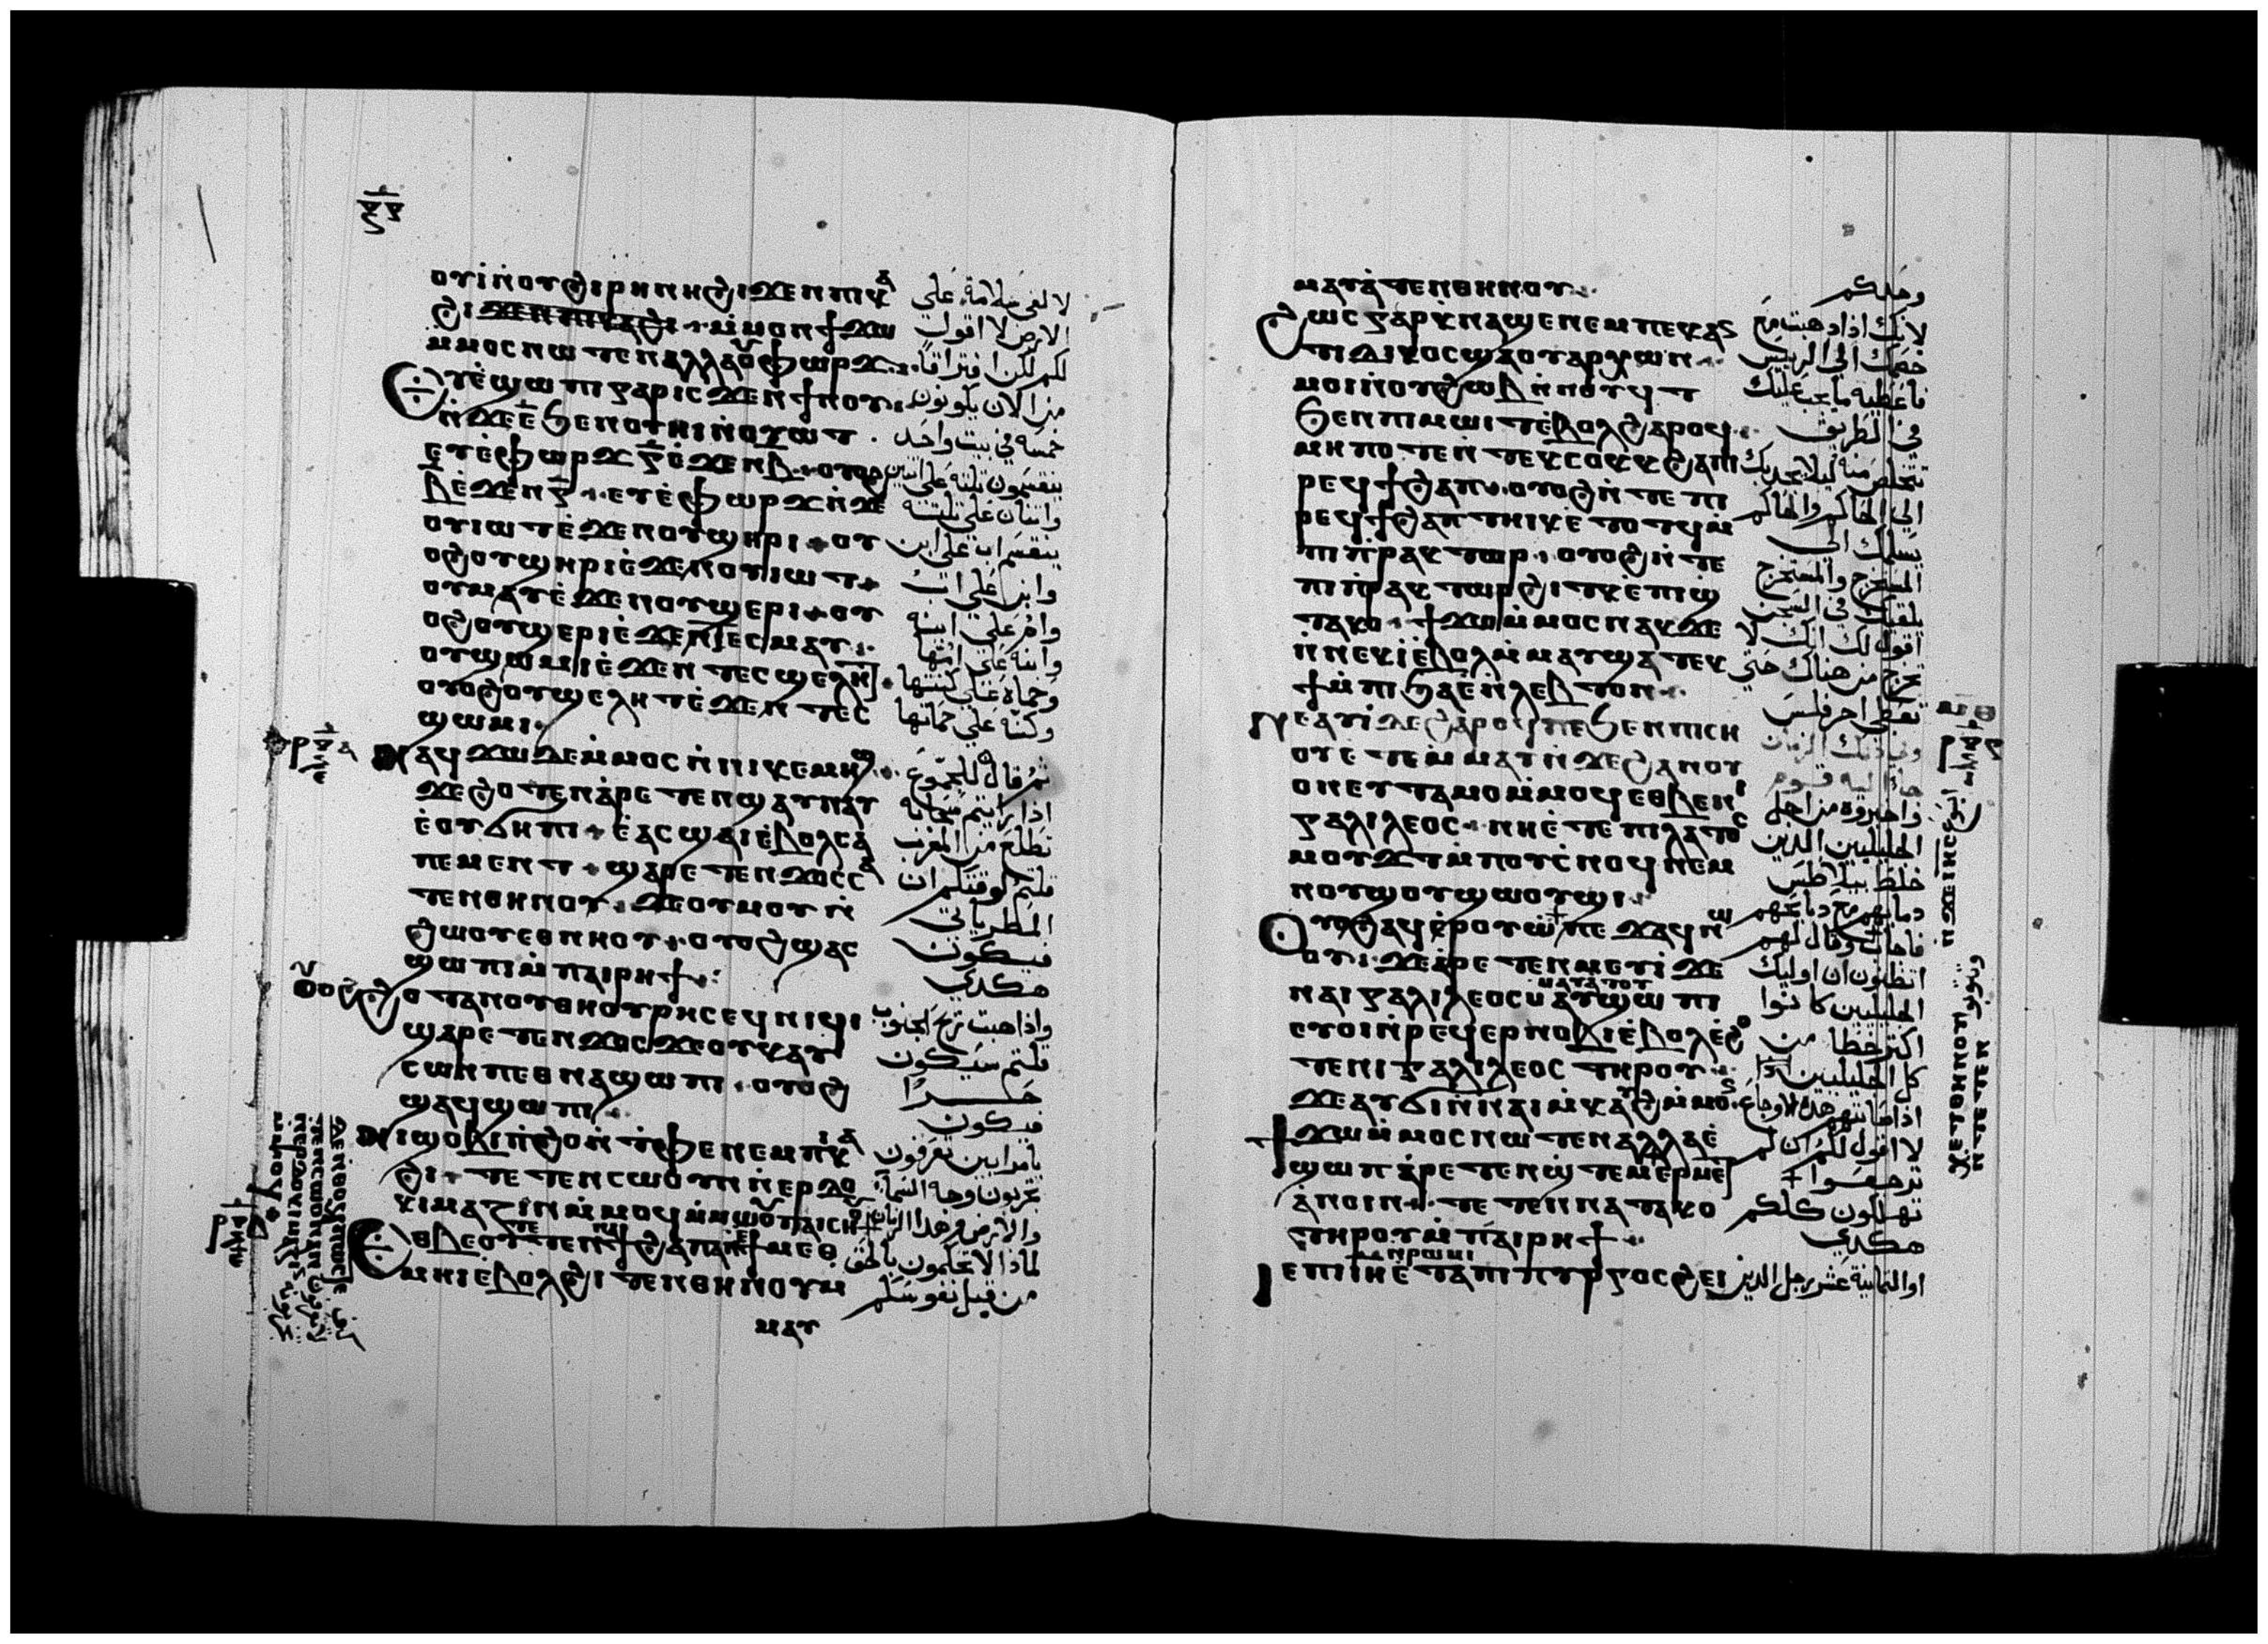 ⲟⲩⲓ̀ⲛ̀ⲟⲩϩⲓⲣⲏⲛⲏϩⲓϫⲉⲛⲡⲓⲕⲁ
ϩⲓ ϫⲉⲛⲡⲓⲕⲁϩⲓ ⲙ̀ⲙⲟⲛϯϫⲱ
ⲙⲙⲟⲥⲛⲱⲧⲉⲛⲁⲗⲗⲁⲟⲩⲫⲱⲣϫ
ⲉⲩⲉ̀ϣⲱⲡⲓⲅⲁⲣⲓⲥϫⲉⲛϯⲛⲟⲩ
ⲛ̀ϫⲉⲉ̅ϧⲉⲛⲟⲩⲏⲓⲛ̀ⲟⲩⲱⲧ
ⲉⲩⲉ̀ⲫⲱⲣϫ ⲅ̅ⲉ̀ϫⲉⲛⲃ̅ ⲟⲩⲟϩ
ⲃ̅ⲉ̀ϫⲉⲛⲅ̅ ⲉⲩⲉ̀ⲫⲱⲣϫⲛ̀ϫⲉ
ⲟⲩⲓⲱⲧⲉ̀ϫⲉⲛⲟⲩϣⲏⲣⲓ ⲟⲩ
ⲟϩⲟⲩϣⲏⲣⲓⲉ̀ϫⲉⲛⲟⲩⲓⲱⲧ
ⲟⲩⲙⲁⲩⲉ̀ϫⲉⲛⲟⲩϣⲉⲣⲓ ⲟⲩ
ⲟϩⲟⲩϣⲉⲣⲓⲉ̀ϫⲉⲛⲧⲉⲥⲙⲁⲩ
ⲟⲩϣⲱⲙⲓⲉ̀ϫⲉⲛⲧⲉⲥϣⲉⲗⲏⲧ
ⲟⲩⲟϩⲟⲩϣⲉⲗⲏⲧⲉ̀ϫⲉⲛⲧⲉⲥ
ϣⲱⲙⲓ
ⲛⲁϥϫⲱⲇⲉⲙ̀ⲙⲟⲥⲛ̀ⲛⲓⲕⲉⲙⲏϣ
ϫⲉϩⲟⲧⲉⲛⲁⲣⲉⲧⲉⲛϣⲁⲛⲛⲁⲩ
ⲉ̀ⲟⲩϭⲏⲡⲓ ⲉ̀ⲁⲥϣⲁⲓⲉ̀ⲃⲟⲗⲥⲁ
ⲡⲉⲙⲉⲛⲧ ϣⲁⲣⲉⲧⲉⲛϫⲟⲥⲥⲁ
ⲧⲉⲛⲑⲏⲛⲟⲩ ϫⲉⲟⲩⲙⲟⲩⲛ̀
ϩⲱⲟⲩⲉⲑⲛⲏⲟⲩ ⲟⲩⲟϩϣⲁⲥ
ϣⲱⲡⲓⲙ̀ⲡⲁⲓⲣⲏϯ
ⲟⲩⲟϩϩⲟⲧⲁⲛⲟⲩⲑⲏⲟⲩⲣⲏⲥⲉϥⲛⲓϥⲓ
ϣⲁⲣⲉⲧⲉⲛϫⲟⲥϫⲉⲟⲩⲕⲁⲩ
ⲥⲱⲛⲡⲉⲑⲛⲁϣⲱⲡⲓ ⲟⲩⲟϩ
ϣⲁϥϣⲱⲡⲓ
ⲛⲓϣⲟⲃⲓⲡ̀ϩⲟⲛ̀ⲧⲫⲉⲛⲉⲙⲡⲕⲁ
ϩⲓ ⲧⲉⲧⲉⲛⲥⲱⲟⲩⲛⲛ̀ⲉⲣⲇⲟ
ⲕⲓⲙⲁⲍⲓⲛⲙ̀ⲙⲟϥ
ⲉⲑⲃⲉⲟⲩⲧⲉⲧⲉⲛϯϩⲁⲡⲁⲛⲙ̀ⲙⲉⲑ
ⲙⲏⲓⲉ̀ⲃⲟⲗϩⲓⲧⲉⲛⲑⲏⲛⲟⲩⲙ
ⲙⲁⲩ
لا لقى سلامة على
الارض لا اقول
لكم لكن افتراقا
من الان يكونون
خمسه في بيت واحد
ينقسمون ثلثه على اثنين
واثنان على ثلثه
ينقسم اب على ابن
وابن على اب
وام على ابنه
وابنه على امها
وحماه على كنتها
وكنه على حماتها
ثم قال للجموع
اذا رايتم سحابه
تطلع من المغرب
قلتم لوقتكم ان
المطر ياتي
فيكون
هكدي
واذا هبت ريح الجنوب
قلتم سيكون
حـــرا
فيكون
يا مرايين تعرفون
تجربون وجه السماء
والارض وهذا الزمان
لماذا لا تحكمون بالحق
من قبل نفوسكم
ⲙⲁⲩⲁⲧⲉⲛⲑⲏⲛⲟⲩ
ϩⲱⲥⲅⲁⲣⲭⲛⲁϣⲉⲛⲉⲙⲡⲉⲕⲁⲛ
ⲧⲓⲇⲓⲕⲟⲥϣⲁⲟⲩⲁⲣⲭⲱⲛ
ⲙⲟⲓⲛ̀ⲟⲩϩⲱⲃⲛ̀ⲛⲟⲩϥⲧ
ϧⲉⲛⲡⲓⲙⲱⲓⲧⲉ̀ⲃⲟⲗϩⲁⲣⲟϥ
ⲙⲏⲡⲟⲧⲉⲛ̀ⲧⲉϥⲥⲟⲕⲕϩⲁⲡⲓ
ⲣⲉϥϯϩⲁⲡ ⲟⲩⲟϩⲛ̀ⲧⲉⲡⲓ
ⲣⲉϥϯϩⲁⲡⲧⲏⲓⲕⲉ̀ⲧⲟⲧϥⲙ̀
ⲡⲓⲡ̀ⲣⲁⲕⲧⲱⲣ ⲟⲩⲟϩⲛ̀ⲧⲉ
ⲡⲓⲡ̀ⲣⲁⲕⲧⲱⲣϩⲓⲧⲕⲉ̀ⲡⲓϣ
ⲧⲁⲕⲟ ϯϫⲱⲙ̀ⲙⲟⲥⲛⲁⲕϫⲉ
ⲛ̀ⲛⲉⲕⲓ̀ⲉ̀ⲃⲟⲗⲙ̀ⲙⲁⲩϣⲁⲧⲉⲕ
ϯⲙ̀ⲡⲓϧⲁⲉ̀ⲛ̀ⲗⲉⲃⲧⲟⲛ
ⲛⲉⲁⲩⲓ̀ⲇⲉϩⲁⲣⲟϥⲡⲉϧⲉⲛⲡⲓⲥⲏ
ⲟⲩⲉⲧⲉⲙ̀ⲙⲁⲩⲛ̀ϫⲉϩⲁⲛⲟⲩ
ⲟⲛⲉⲩⲧⲁⲙⲟⲙ̀ⲙⲟϥⲉⲑⲃⲉⲛⲓ
ⲅⲁⲗⲓⲗⲉⲟⲥ ⲛⲏⲉ̀ⲧⲉⲡⲓⲗⲁⲧⲟⲥ
ⲙⲟⲩϫⲧⲙ̀ⲡⲟⲩⲥ̀ⲛⲟϥⲛⲉⲙ
ⲛⲟⲩϣⲟⲩϣⲱⲟⲩϣⲓ
ⲟⲩⲟϩⲁϥⲉ̀ⲣⲟⲩⲱ̀ⲡⲉϫⲁϥⲛⲱ
ⲟⲩ ϫⲉⲁⲣⲉⲧⲉⲛⲙⲉⲩⲓ̀ϫⲉ
ⲛⲁⲓⲅⲁⲗⲓⲗⲉⲟⲥ ⲙⲁⲩⲁⲧⲟⲩ ⲁⲩϣⲱⲡⲓ
ⲉⲩⲟⲓⲛ̀ⲣⲉϥⲉⲣⲛⲟⲃⲓⲉ̀ⲃⲟⲗⲉ̀ϩⲟ
ⲧⲉⲛⲓⲅⲁⲗⲓⲗⲉⲟⲥⲧⲏⲣⲟⲩ
ϫⲉⲁⲩϭⲓⲛ̀ⲛⲁⲓⲙ̀ⲕⲁⲩϩⲙ̀ⲙⲟⲥ
ϯϫⲱⲙ̀ⲙⲟⲥⲛⲱⲧⲉⲛⲁⲗⲗⲁⲉ̀
ϣⲱⲡⲁⲣⲉⲧⲉⲛϣ̀ⲧⲉⲙⲉⲣⲙⲉⲧ
ⲁⲛⲟⲓⲛ ⲧⲉⲧⲉⲛⲛⲁⲧⲁⲕⲟ
ⲧⲏⲣⲟⲩⲙ̀ⲡⲁⲓⲣⲏϯ
ⲓⲉⲡⲓⲓⲏⲉ̀ⲧⲁⲡⲓⲡⲩⲣⲅⲟⲥϩⲉⲓ
وحدكم
لانك اذا ذهبت مع
خصمك الى الرييس
فاعطيه ما يجب عليك
في الطريق
تتخلص منه ليلا يجذبك
الى الحاكم والحاكم
يسلمك الى
المستخرج والمستخرج
يلقيك في السجن
اقول لك انك لا
تخرج من هناك حتى
تعطى اخر فلس
وفي ذلك الزمان
جاا اليه قوم
واخبروه من اجل
الجليليين الذين
خلط بيلاطس
دماهم مع ذبايحهم
فاجاب وقال لهم
اتظنون ان اوليك
الجليليين كانوا
اكثر خطا من
كل الجليليين
اذ اصابتهم هذه الاوجاع
لا اقول لكم ان لم
ترجعـــوا
تهلكون كلكم
هكدي
او الثمانية عشر رجل الذين